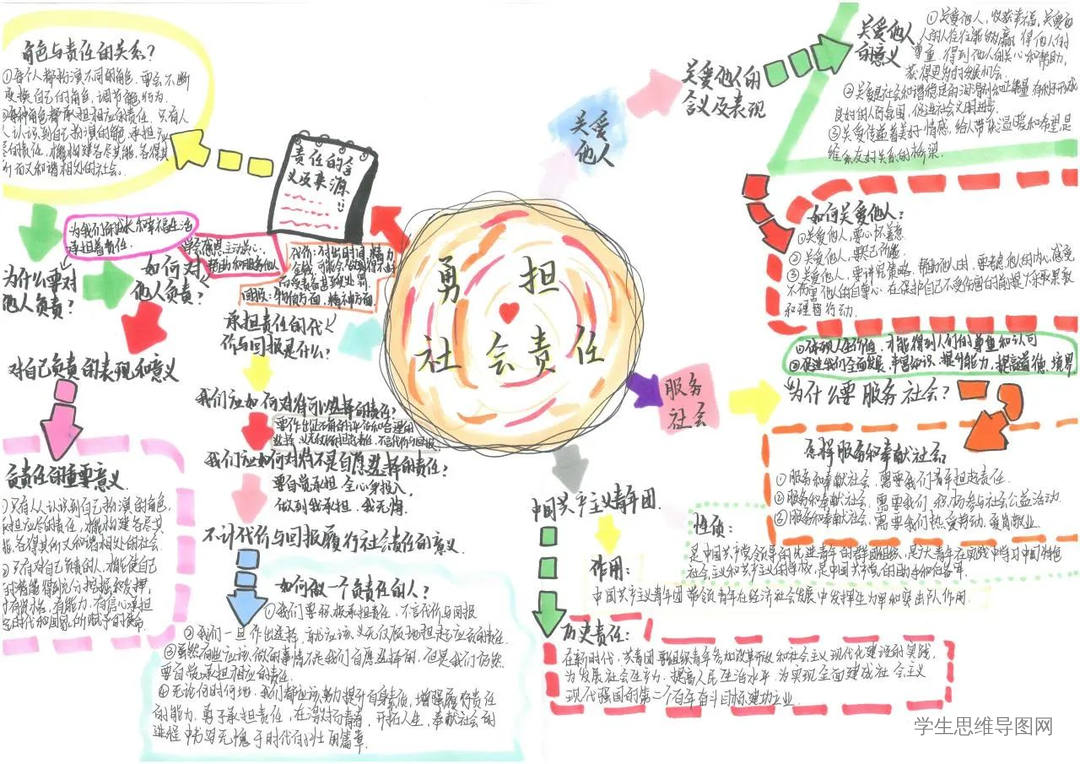 勇担
社会责任
角色与责任的关系?
①每个人都扮演不同的角色,要会不断
变换自己的角色,调节能行为.
每种角色都承担相应的责任.只有人
人认识到自己扮演的角色,承担应
尽的责任,才能构建各尽其能、各得其
所而又和谐相处的社会.
责任的含
义及来源
为我们的成长和幸福生活
承担着责任.
学会感恩,主动关心、
帮助和服务他人
为什么要对
他人负责?
如何对
他人负责?
代价:付出时间、精力
金钱
回报:物质方面,精神方面.
承担责任的代
价与回报是什么?
对自己负责的表现和意义
负责任的重要意义.
①只有人人认识到自己扮演的角色,
承担应尽的责任,才能构建各尽其
能、各得其所又和谐相处的社会
②只有对自己负责的人,才能使自己
的潜能得到充分挖掘和发挥,
才有资格、有能力、有信心承担
起时代和国家所赋予的使命.
我们应如何对待可以选择的责任?
我们应如何对待不是自愿选择的责任?
要自觉承担,全心身投入.
做到我承担,我无悔.
不计代价与回报履行社会责任的意义.
如何做一个负责任的人?
①我们要积极承担责任,不言代价与回报
②我们一旦作出选择,就应该义无反顾地担起应负的责任.
③虽然有些应该做的事情不是我们自愿选择的,但是我们仍然
要自觉承担相应的责任.
④无论何时何地,我们都应该努力提升自身素质,增强履行责任
的能力.勇于承担责任,在激扬青春、开拓人生、奉献社会的
进程中书写无愧于时代的壮丽篇章.
关爱
他人
关爱他人的
含义及表现
关爱他人
的意义
①关爱他人,收获幸福,关爱
人的人往往能够赢得他人的
尊重,得到他人的关心和帮助,
获得更好的发展机会.
②关爱是社会和谐稳定的润滑剂和正能量,有利于形成
良好的人际氛围,促进社会文明进步.
③关爱传递着美好情感,给人带来温暖和希望,是
维系友好关系的桥梁.
如何关爱他人?
①关爱他人,要心怀善意
②关爱他人,要尽己所能.
③关爱他人,要讲究策略.帮助他人时,要考虑他人的内心感受,
不伤害他人的自尊心.在保护自己不受伤害的前提下采取果敢
和理智行动.
服务
社会
①体现人生价值,才能得到人们的尊重和认可
②促进我们全面发展,丰富知识,提升能力,提高道德境界
为什么要服务社会?
怎样服务和奉献社会
①服务和奉献社会,需要我们青年担起责任.
②服务和奉献社会,需要我们积极参与社会公益活动.
③服务和奉献社会,需要我们热爱劳动,爱岗敬业.
中国共产主义青年团.
性质:
是中国共产党领导的先进青年的群团组织,是广大青年在实践中学习中国特色
社会主义和共产主义的学校,是中国共产党的助手和后备军.
作用:
中国共产主义青年团带领青年在经济社会发展中发挥生力军和突击队作用.
历史责任:
在新时代,共青团要组织青年参加改革开放和社会主义现代化建设的实践,
为发展社会生产力、提高人民生活水平、为实现全面建成社会主义
现代强国的第二个百年奋斗目标建功立业.
学生思维导图网